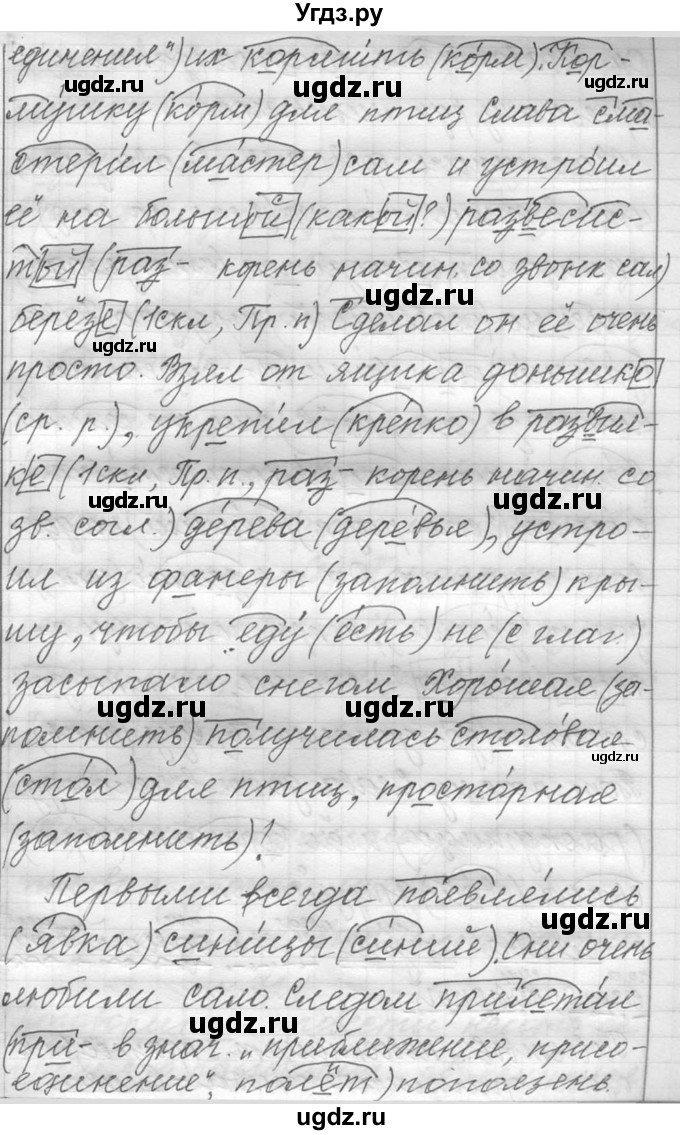 Угдз.ру
единения") их кормить (корм). Кор-
мушку (корм) для птиц Слава сма-
стерил (мастер) сам и устроил
её на большой (какой?) развесис-
тый (раз- корень начин. со звонк. сал)
берёзе (1скл, Пр.п) Сделал он её очень
просто. Взял от ящика донышко
(ср. р.), укрепил (крепко) в развил-
ке (1скл, Пр.п., раз- корень начин. со
зв. согл.) дерева (деревья), устро-
ил из фанеры (запомнить) кры-
шу, чтобы еду (есть) не (с глаг.)
засыпало снегом Хорошая (за-
помнить) получилась столовая
(стол) для птиц, просторная
(запомнить)!
Первыми всегда появлялись
(явка) синицы (синий). Они очень
любили сало. Следом прилетал
(при- в знач. „приближение, присо-
единение", полёт) поползень.
ugdz.ru
ugdz.ru
ugdz.ru
ugdz.ru
ugdz.ru
ugdz.ru
ugdz.ru
ugdz.ru
ugdz.ru
ugdz.ru
ugdz.ru
ugdz.ru
ugdz.ru
ugdz.ru